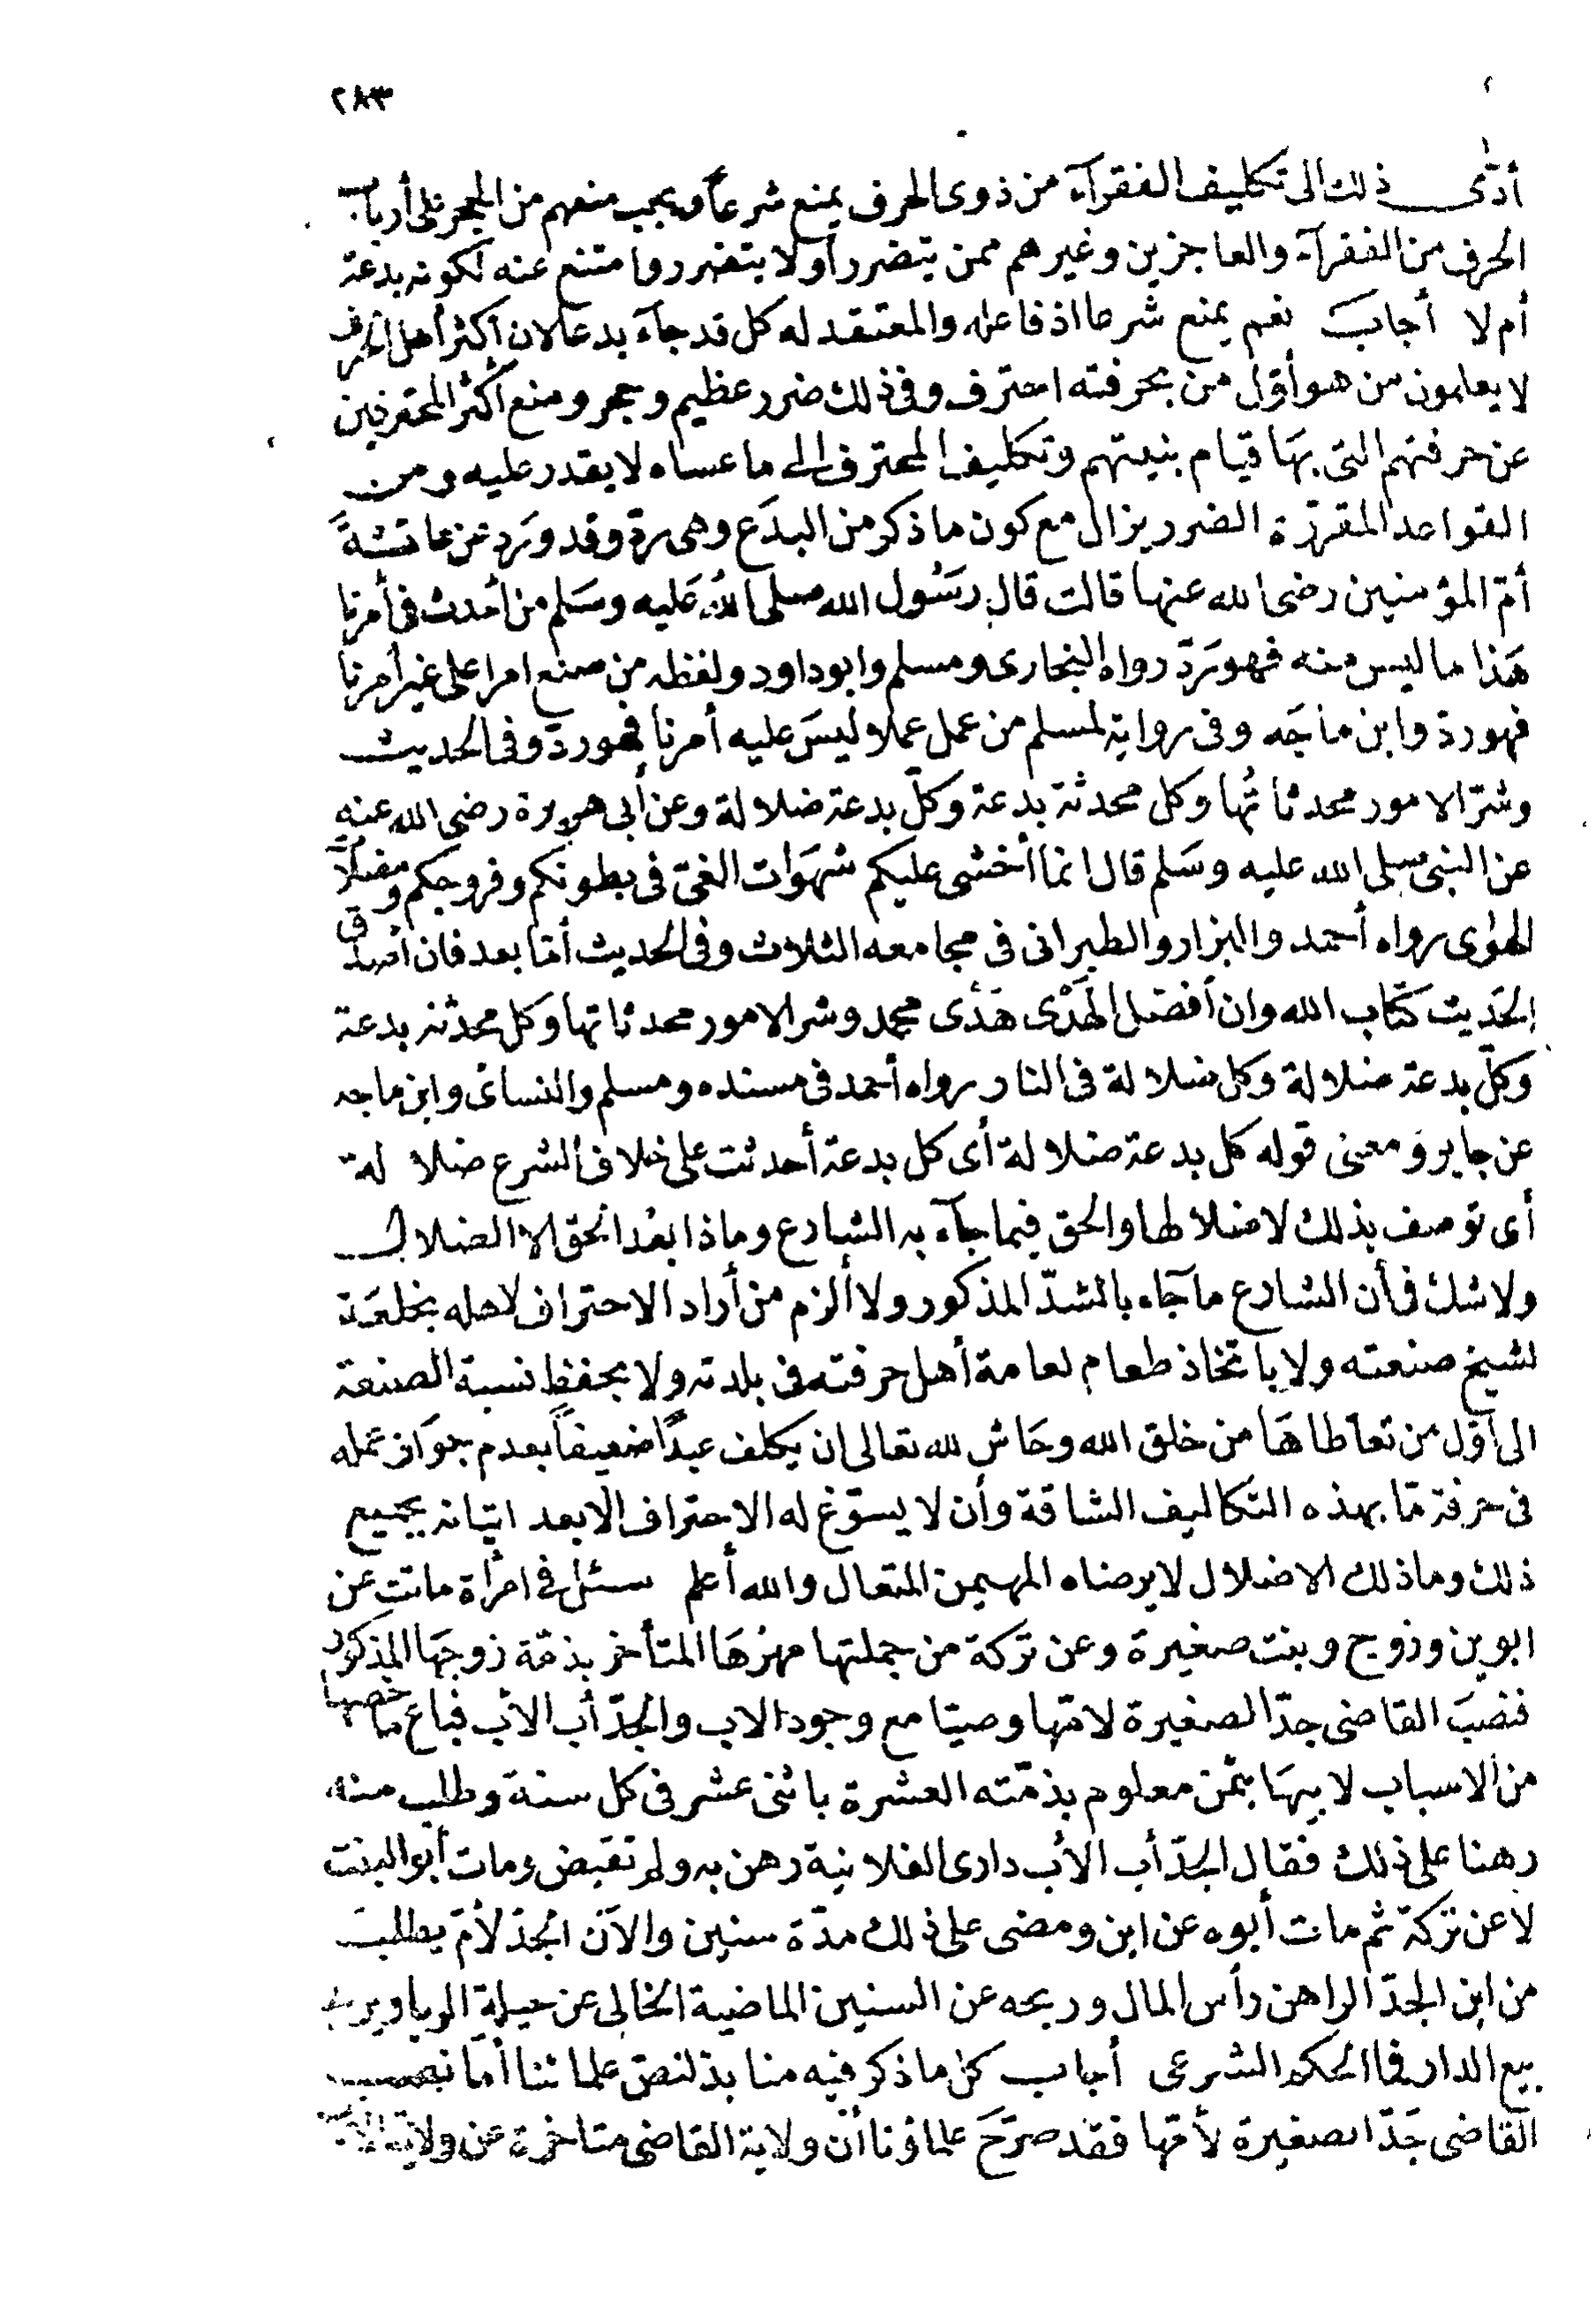 ٢٨٣
أدّى ذلك الى تكليف الفقرآء من ذوى الحرف يمنع شرعاً ويجب منعهم من الحجر على أرباب
الحرف من الفقرآء والعاجزين وغيرهم ممن يتضرر أو لا يتضرر وامتنع عنه لكونه بدعة
أم لا أجاب نعم يمنع شرعا اذ فاعله والمعتقد له كل قد جآء بدعا لان أكثر أهل الحرف
لا يعلمون من هو أوّل من بحرفته احترف وفى ذلك ضرر عظيم وحجر ومنع أكثر المحترفين
عن حرفتهم التى بهَا قيام بنيتهم وتكليف المحترف الى ما عساه لا يقدر عليه ومن
القواعد المقررّة الضرر يزال مع كون ما ذكر من البدَع وهى ردّ وقد ورَد عن عائشةَ
أمّ المؤمنين رضى الله عنها قالت قال رسُول الله صلى اللهُ عَليه وسَلم من أحدث فى أمرنا
هَذا ما ليس منه فهو رَدّ رواه البخارى ومسلم وابو داود ولفظه من صنع امرا على غير أمرنا
فهو ردّ وابن ماجَه وفى رواية لمسلم من عمل عملا ليسَ عليه أمرنا فهو ردّ وفى الحديث
وشرّ الامور محدثاتُها وكل محدثة بدعة وكلّ بدعة ضلالة وعن أبى هريرة رضى الله عنه
عن النبى صلى الله عليه وسَلم قال انما أخشى عليكم شهَوَات الغىّ فى بطونكم وفروجكم ومضلاّت
الهوٰى رواه أحمد والبزار والطبرانى فى مجامعه الثلاث وفى الحديث أمّا بعد فان أصدق
الحَديث كتَاب الله وان أفضل الهَدْى هَدْى محمد وشر الامور محدثاتها وكل محدثة بدعة
وكلّ بدعة ضلالة وكل ضلالة فى النار رواه أحمد فى مسنده ومسلم والنسائى وابن ماجه
عن جابر وَمعنى قوله كل بدعة ضلالة أى كل بدعة أحدثت على خلاف الشرع ضلالة
أى توصف بذلك لاضلالها والحق فيما جآء به الشارع وماذا بعْد الحق الا الضلال
ولا شك فى أن الشارع ما جآء بالشدّ المذكور ولا ألزم من أراد الاحتراف لاهله بخلعَة
لشيخ صنعته ولا باتخاذ طعام لعامة أهل حرفته فى بلدته ولا بحفظ نسبة الصنعة
الى أوّل من تعاطاهَا من خلق الله وحَاش لله تعالى ان يكلف عبدًا ضعيفاً بعدم جوَاز عمله
فى حرفة مّا بهذه التكاليف الشاقة وأن لا يسوّغ له الاحتراف الا بعد اتيانه بجميع
ذلك وما ذلك الا ضلال لا يرضاه المهيمن المتعال والله أعلم سئل فى امرأة ماتت عن
ابوين وزوج وبنت صغيرة وعن تركة من جملتها مهرُهَا المتأخر بذمّة زوجهَا المذكور
فنصبَ القاضى جدّ الصغيرة لامّها وصيّا مع وجود الاب والجدّ أب الأب فباع ما خصها
من الاسباب لابيهَا بثمن معلوم بذمّته العشرة باثنى عشر فى كل سنة وطلب منه
رهنا على ذلك فقال الجدّ أب الأب دارى الفلانية رهن به ولم تقبض ومات أبو البنت
لا عن تركة ثم مات أبوه عن ابن ومضى على ذلك مدّة سنين والآن الجدّ لأمّ يطلب
من ابن الجدّ الراهن رأس المال وربحه عن السنين الماضية الخالى عن حيلة الربا ويريد
بيع الدار فما الحكم الشرعى أجاب كل ما ذكر فيه منابذ لنصّ علمائنا أمّا نصب
القاضى جَدّ الصغيرة لأمّها فقد صرّحَ علماؤنا أن ولاية القاضى متاخرة عن ولاية